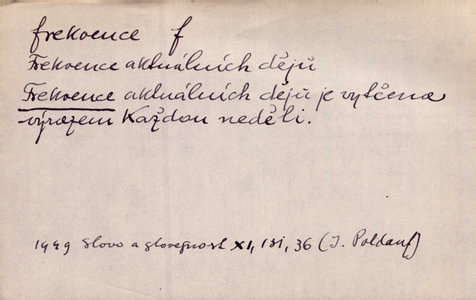 frekvence f
Frekvence aktuálních dějů
Frekvence aktuálních dějů je vytčena
výrazem Každou neděli.
1949 Slovo a slovesnost XI, 36 (I. Poldauf)